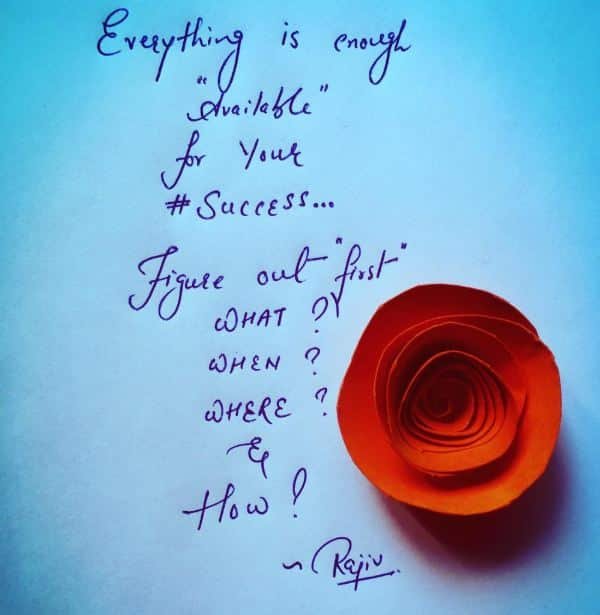 Everything is enough
"Available"
for Your
# Success...
Figure out "first"
WHAT ?
WHEN ?
WHERE ?
&
How !
~ Rajiv.